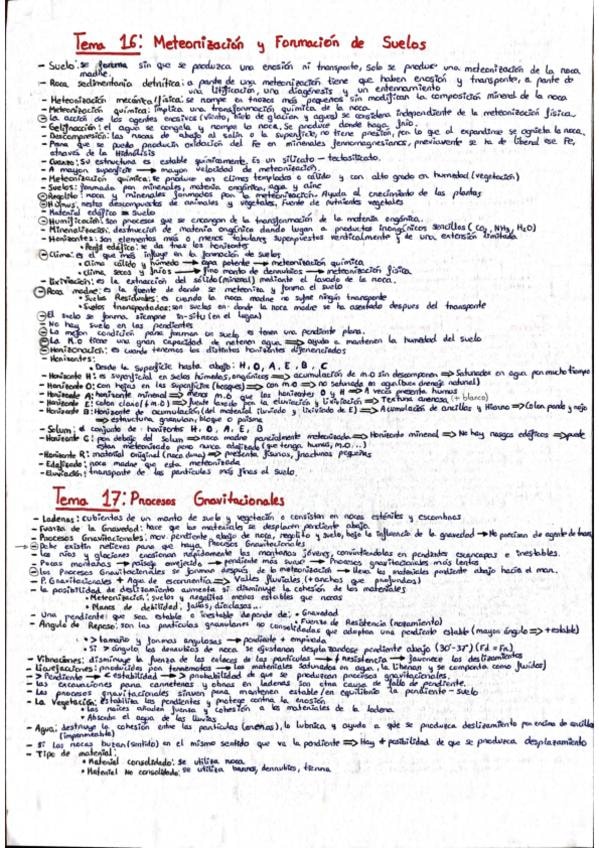 Tema 16: Meteorización y Formación de Suelos
- Suelo: se forma sin que se produzca una erosión ni transporte, solo se produce una meteorización de la roca
madre.
- Roca sedimentaria detrítica: a parte de una meteorización tiene que haber erosión y transporte, a parte de
una litificación, una diagénesis y un enterramiento
- Meteorización mecánica/física: se rompe en trozos más pequeños sin modificar la composición mineral de la roca
- Meteorización química: implica una transformación química de la roca
- La acción de los agentes erosivos (viento, hielo de glaciar y agua) se considera independiente de la meteorización física.
- Gelifracción: el agua se congela y rompe la roca. Se produce donde haya frío.
- Descompresión: las rocas de abajo al salir a la superficie, no tiene presión, por lo que al expandirse se agrieta la roca.
- Para que se pueda producir oxidación del Fe en minerales ferromagnesianos, previamente se ha de liberar ese Fe,
através de la Hidrólisis
- Cuarzo: Su estructura es estable químicamente. Es un silicato - tectosilicato.
- A mayor superficie → mayor velocidad de meteorización.
- Meteorización química: se produce en climas templados o cálido y con alto grado en humedad (vegetación)
- Suelos: formado por minerales, materia orgánica, agua y aire
- Regolito: roca y minerales formados por la meteorización. Ayuda al crecimiento de las plantas
- Humus: restos descompuestos de animales y vegetales, fuente de nutrientes vegetales
- Material edáfico = Suelo
- Humificación: son procesos que se encargan de la transformación de la materia orgánica.
- Mineralización: destrucción de materia orgánica dando lugar a productos inorgánicos sencillos (CO₂, NH₃, H₂O)
- Horizontes: son elementos más o menos tabulares superpuestos verticalmente y de una extensión limitada
• Perfil edáfico: se da tras los horizontes
- Clima: es el que más influye en la formación de suelos
• Clima cálido y húmedo → capa potente → meteorización química
• Clima secos y fríos → fino manto de derrubios → meteorización física
- Lixiviación: es la extracción del sólido (mineral) mediante el lavado de la roca.
- Roca madre: es la fuente de donde se meteoriza y forma el suelo
• Suelos Residuales: es cuando la roca madre no sufre ningún transporte
• Suelos transportados: son suelos en donde la roca madre se ha asentado despues del transporte
- El suelo se forma siempre in-situ (en el lugar)
- No hay suelo en las pendientes
- La mejor condición para formar un suelo es tener una pendiente plana.
- La M.O tiene una gran capacidad de retener agua ⇒ ayuda a mantener la humedad del suelo
- Horizonación: es cuando tenemos los distintos horizontes diferenciados
- Horizontes:
• Desde la superficie hasta abajo: H, O, A, E, B, C
- Horizonte H: es superficial en suelos húmedos, orgánicos ⇒ acumulación de m.o sin descomponer ⇒ Saturados en agua por mucho tiempo
- Horizonte O: con hojas en las superficies (bosques) ⇒ con m.o ⇒ no saturado en agua (buen drenaje natural)
- Horizonte A: horizonte mineral ⇒ menos m.o que los horizontes O y H ⇒ A veces presenta humus
- Horizonte E: Color claro (↓ m.o) ⇒ fuerte lavado por la eluviación y lixiviación ⇒ textura arenosa (+ blanco)
- Horizonte B: Horizonte de acumulación (del material iluviado y lixiviado de E) ⇒ Acumulación de arcillas y Hierro ⇒ Color pardo y rojo
⇒ estructura granular, bloque o prisma
- Solum: el conjunto de horizontes H, O, A, E, B
- Horizonte C: por debajo del solum ⇒ roca madre parcialmente meteorizada ⇒ Horizonte mineral ⇒ No hay rasgos edáficos ⇒ puede
estar meteorizado pero nunca edafizado (que tenga humus, m.o, ...)
- Horizonte R: material original (roca dura) ⇒ presenta fisuras, fracturas pequeñas
- Edafizado: roca madre que esta meteorizada
- Eluviación: transporte de las partículas más finas del suelo.
Tema 17: Procesos Gravitacionales
- Laderas: cubiertas de un manto de suelo y vegetación o consistan en rocas estériles y escombros
- Fuerza de la Gravedad: hace que los materiales se desplacen pendiente abajo.
- Procesos Gravitacionales: mov. pendiente abajo de roca, regolito y suelo, bajo la influencia de la gravedad → No precisan de agente de transp.
- Debe existir relieves para que haya Procesos Gravitacionales
- Los ríos y glaciares erosionan rápidamente las montañas jóvenes, convirtiendolas en pendientes escarpadas e inestables.
- Pocas montañas → paisaje envejecido → pendiente más suave → Procesos gravitacionales más lentos
- Los Procesos Gravitacionales se forman después de la meteorización → lleva los materiales pendiente abajo hacia el mar.
- P. Gravitacionales + Agua de escorrentía ⇒ Valles fluviales (+ anchos que profundos)
- La posibilidad de deslizamiento aumenta si disminuye la cohesión de los materiales
• Meteorización: suelos y regolitos menos estables que rocas
• Planos de debilidad, fallas, diaclasas...
- Una pendiente que sea estable o inestable depende de: • Gravedad
• Fuerza de Resistencia (rozamiento)
- Ángulo de Reposo: son las partículas granulares no consolidadas que adoptan una pendiente estable (mayor ángulo ⇒ + estable)
• > tamaño y formas angulosas → pendiente + empinada
• Si > ángulo, los derrubios de roca se ajustaran desplazandose pendiente abajo (30°-37°) (Fd = Fr)
- Vibraciones: disminuye la fuerza de los enlaces de las partículas → ↓ Resistencia → favorece los deslizamientos
- Liquefacciones: producidos por terremotos → los materiales saturados en agua, la liberan y se comporta como fluidos)
- > Pendiente → < estabilidad → > probabilidad de que se produzcan procesos gravitacionales.
- Las excavaciones para carreteras y obras en laderas son otra causa de fallo de pendiente.
- Los procesos gravitacionales sirven para mantener estable/en equilibrio la pendiente - suelo
- La Vegetación: estabiliza las pendientes y protege contra la erosión
• Las raíces añaden fuerza y cohesión a materiales de la ladera
• Absorbe el agua de las lluvias
- Agua: destruye la cohesión entre las partículas (arenas), lo lubrica y ayuda a que se produzca deslizamiento por encima de arcillas
(impermeable)
- Si las rocas buzan (sentido) en el mismo sentido que va la pendiente ⇒ Hay + posibilidad de que se produzca desplazamiento
- Tipo de material:
• Material consolidado: se utiliza roca
• Material No consolidado: se utiliza barros, derrubios, tierra